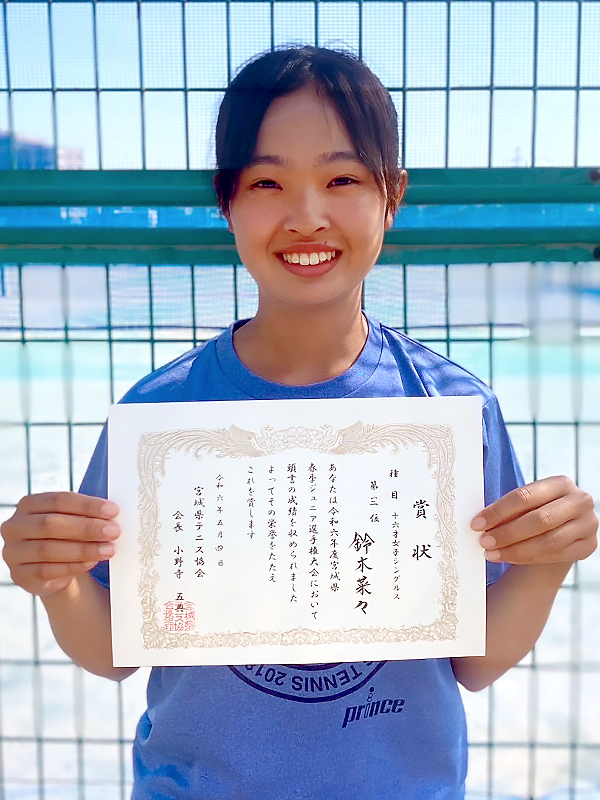 賞状
種目 十六才女子シングルス
第三位
鈴木菜々
あなたは令和六年度宮城県
春季ジュニア選手権大会において
頭書の成績を収められました
よってその栄誉をたたえ
これを賞します
令和六年五月四日
宮城県テニス協会
会長 小野寺 五典
TENNIS 201
prince